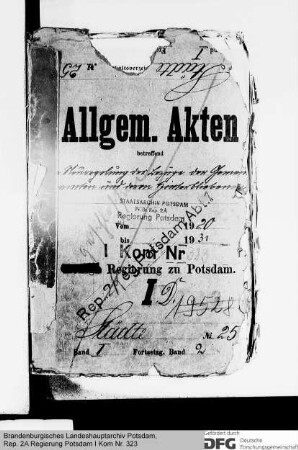 Städte
Allgem. Akten
betreffend
Neuregelung der Bezüge der Gemein
beamten und deren Hinterbliebenen
STAATSARCHIV POTSDAM
Pr. Br. Rep. 2A
Regierung Potsdam
Vom 1920
bis 1931
I Kom Nr
Regierung zu Potsdam.
Rep. 2A Reg. Potsdam Abt. I
I D.
19528
Städte № 25
Band I Fortsetzg. Band 2
Brandenburgisches Landeshauptarchiv Potsdam,
Rep. 2A Regierung Potsdam I Kom Nr. 323
Gefördert durch
DFG Deutsche
Forschungsgemeinschaft